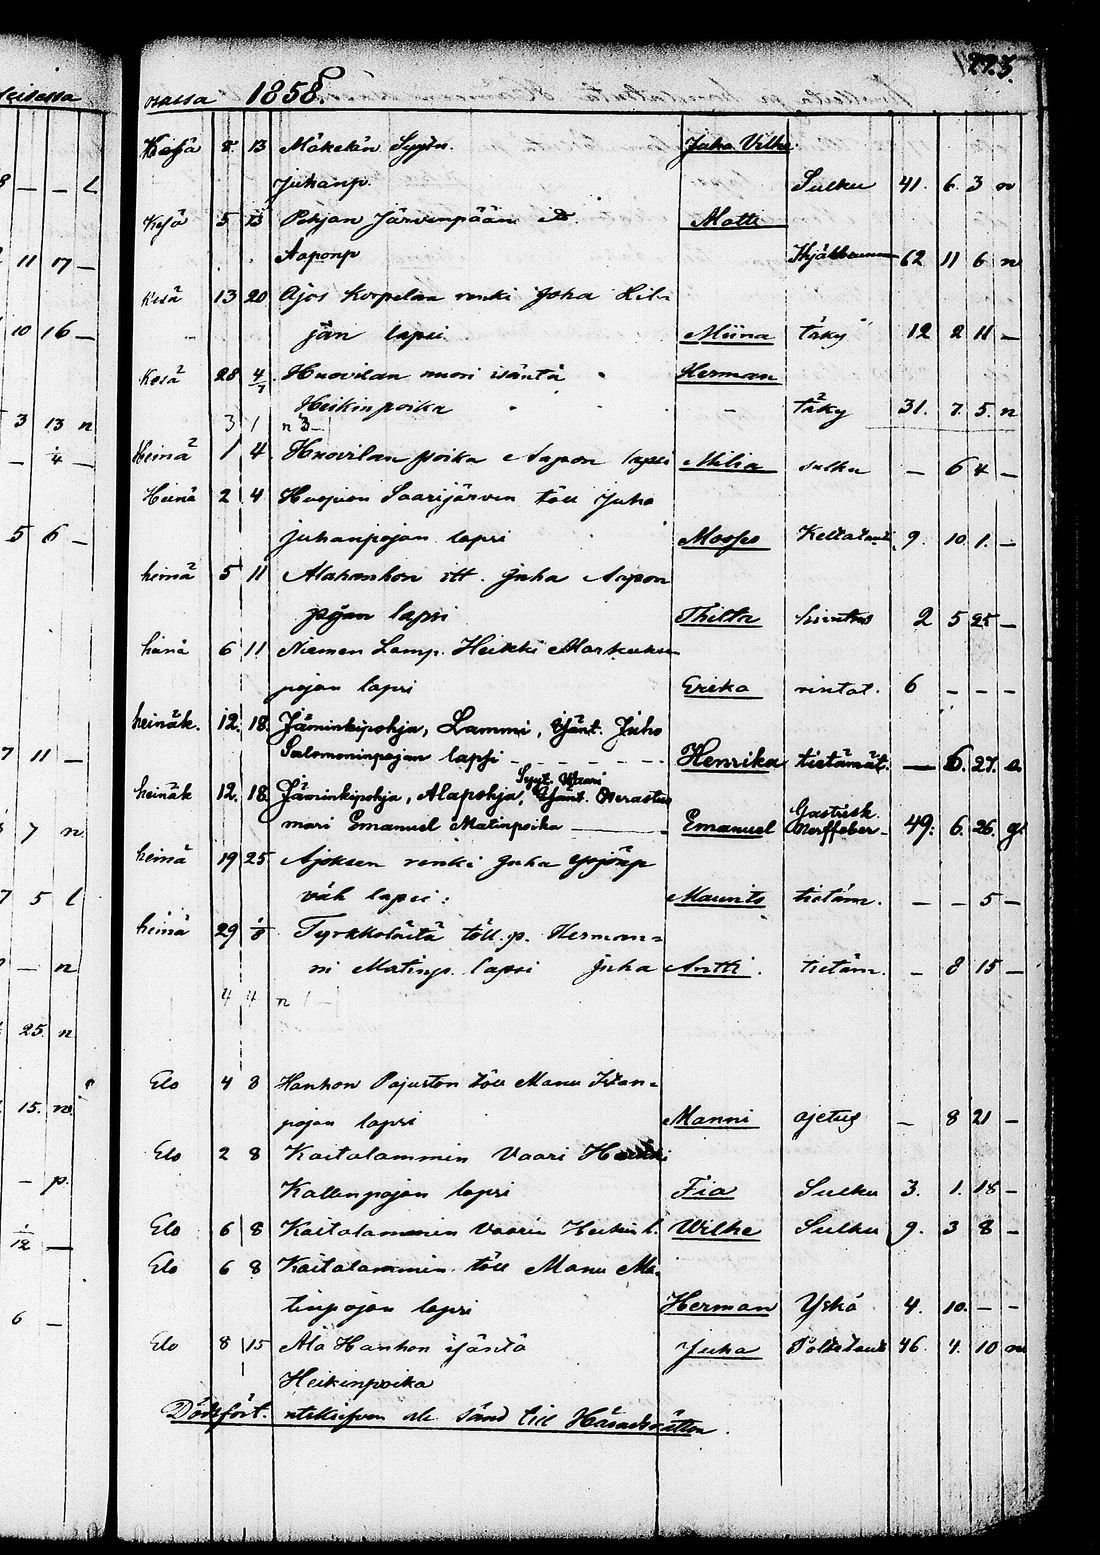 223.
osassa 1858.
Kesä 8 13 Mäkelän Syyt. Juha Vilhe
8 — — l Juhanp. Sulku 41. 6. 3 n
Kesä 5 13 Pohjan Järvenpään Matti
11 17 — Aaponp 62 11 6 n
Kesä 13 20 Ajos Korpelan renki Juha Sil-
10 16 — jän lapsi Miina täky 12 2 11 —
Kesä 28 4/7 Huovilan nuori isäntä Herman
Heikinpoika täky 31. 7. 5. n
3 13 n 3 1 n 3 —
Heinä 1 4 Huovilan poika Aapon lapsi Milia sulku — 6 4 —
— 4 —
Heinä 2 4 Saarijärven töll Juha
5 6 — Juhanpojan lapsi Moses 9. 10. 1. —
heinä 5 11 Alahanhon itt. Juha Aapon
pojan lapsi Thilta 2 5 25 —
heinä 6 11 Niemen Lamp. Heikki Markuksen
pojan lapsi Erika rintat. 6 — — —
heinäk. 12. 18. Jäminkipohja, Lammi, Isänt. Juho
7 11 — Salomoninpojan lapsi — Henrika tietämät. — 6. 27. a
Syyt. Vaari
heinäk 12. 18. Jäminkipohja, Alapohja, Isänt. Nerastus
7 n mari Emanuel Matinpoika — Emanuel Gastrisk. Nerffeber 49: 6. 26. gt
heinä 19 25 Ajoksen renki Juha Yrjönp
7 5 l väh lapsi: Maunits tietäm. — — 5 —
heinä 29 1/8 Tyrkkölästä töll. p. Herman=
— n ni Matinp. lapsi Juha Antti. tietäm. — 8 15 —
4 4 n 1 —
25. n
Elo 4 8 Hanhon Pajuston töll Manu
15. n. pojan lapsi Manni ajetus — 8 21 —
Elo 2 8 Kaitalammin Vaari Heikki
— p. Kallenpojan lapsi Fia Sulku 3. 1. 18 —
1/12 — Elo 6 8 Kaitalammin Vaarin Heikin l. Wilhe Sulku 9. 3 8 —
Elo 6 8 Kaitalammin töll Manu Ma-
6 — tinpojan lapsi Herman Yskä 4. 10. — —
Elo 8 15 Ala Hanhon isäntä Juha Polttetauti 46. 4. 10 n
Heikinpoika
Dödsfört. till Häradsrätten.